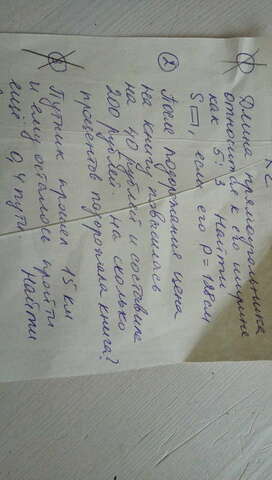 ① Длина прямоугольника
относится к его ширине
как 5:3 Найти
S▭, если его P=128см
② После подорожания цена
на книгу повысилась
на 40 рублей и составила
200 рублей. На сколько
процентов подорожала книга?
③ Путник прошел 15 км
и ему осталось пройти
ещё 0,4 пути. Найти